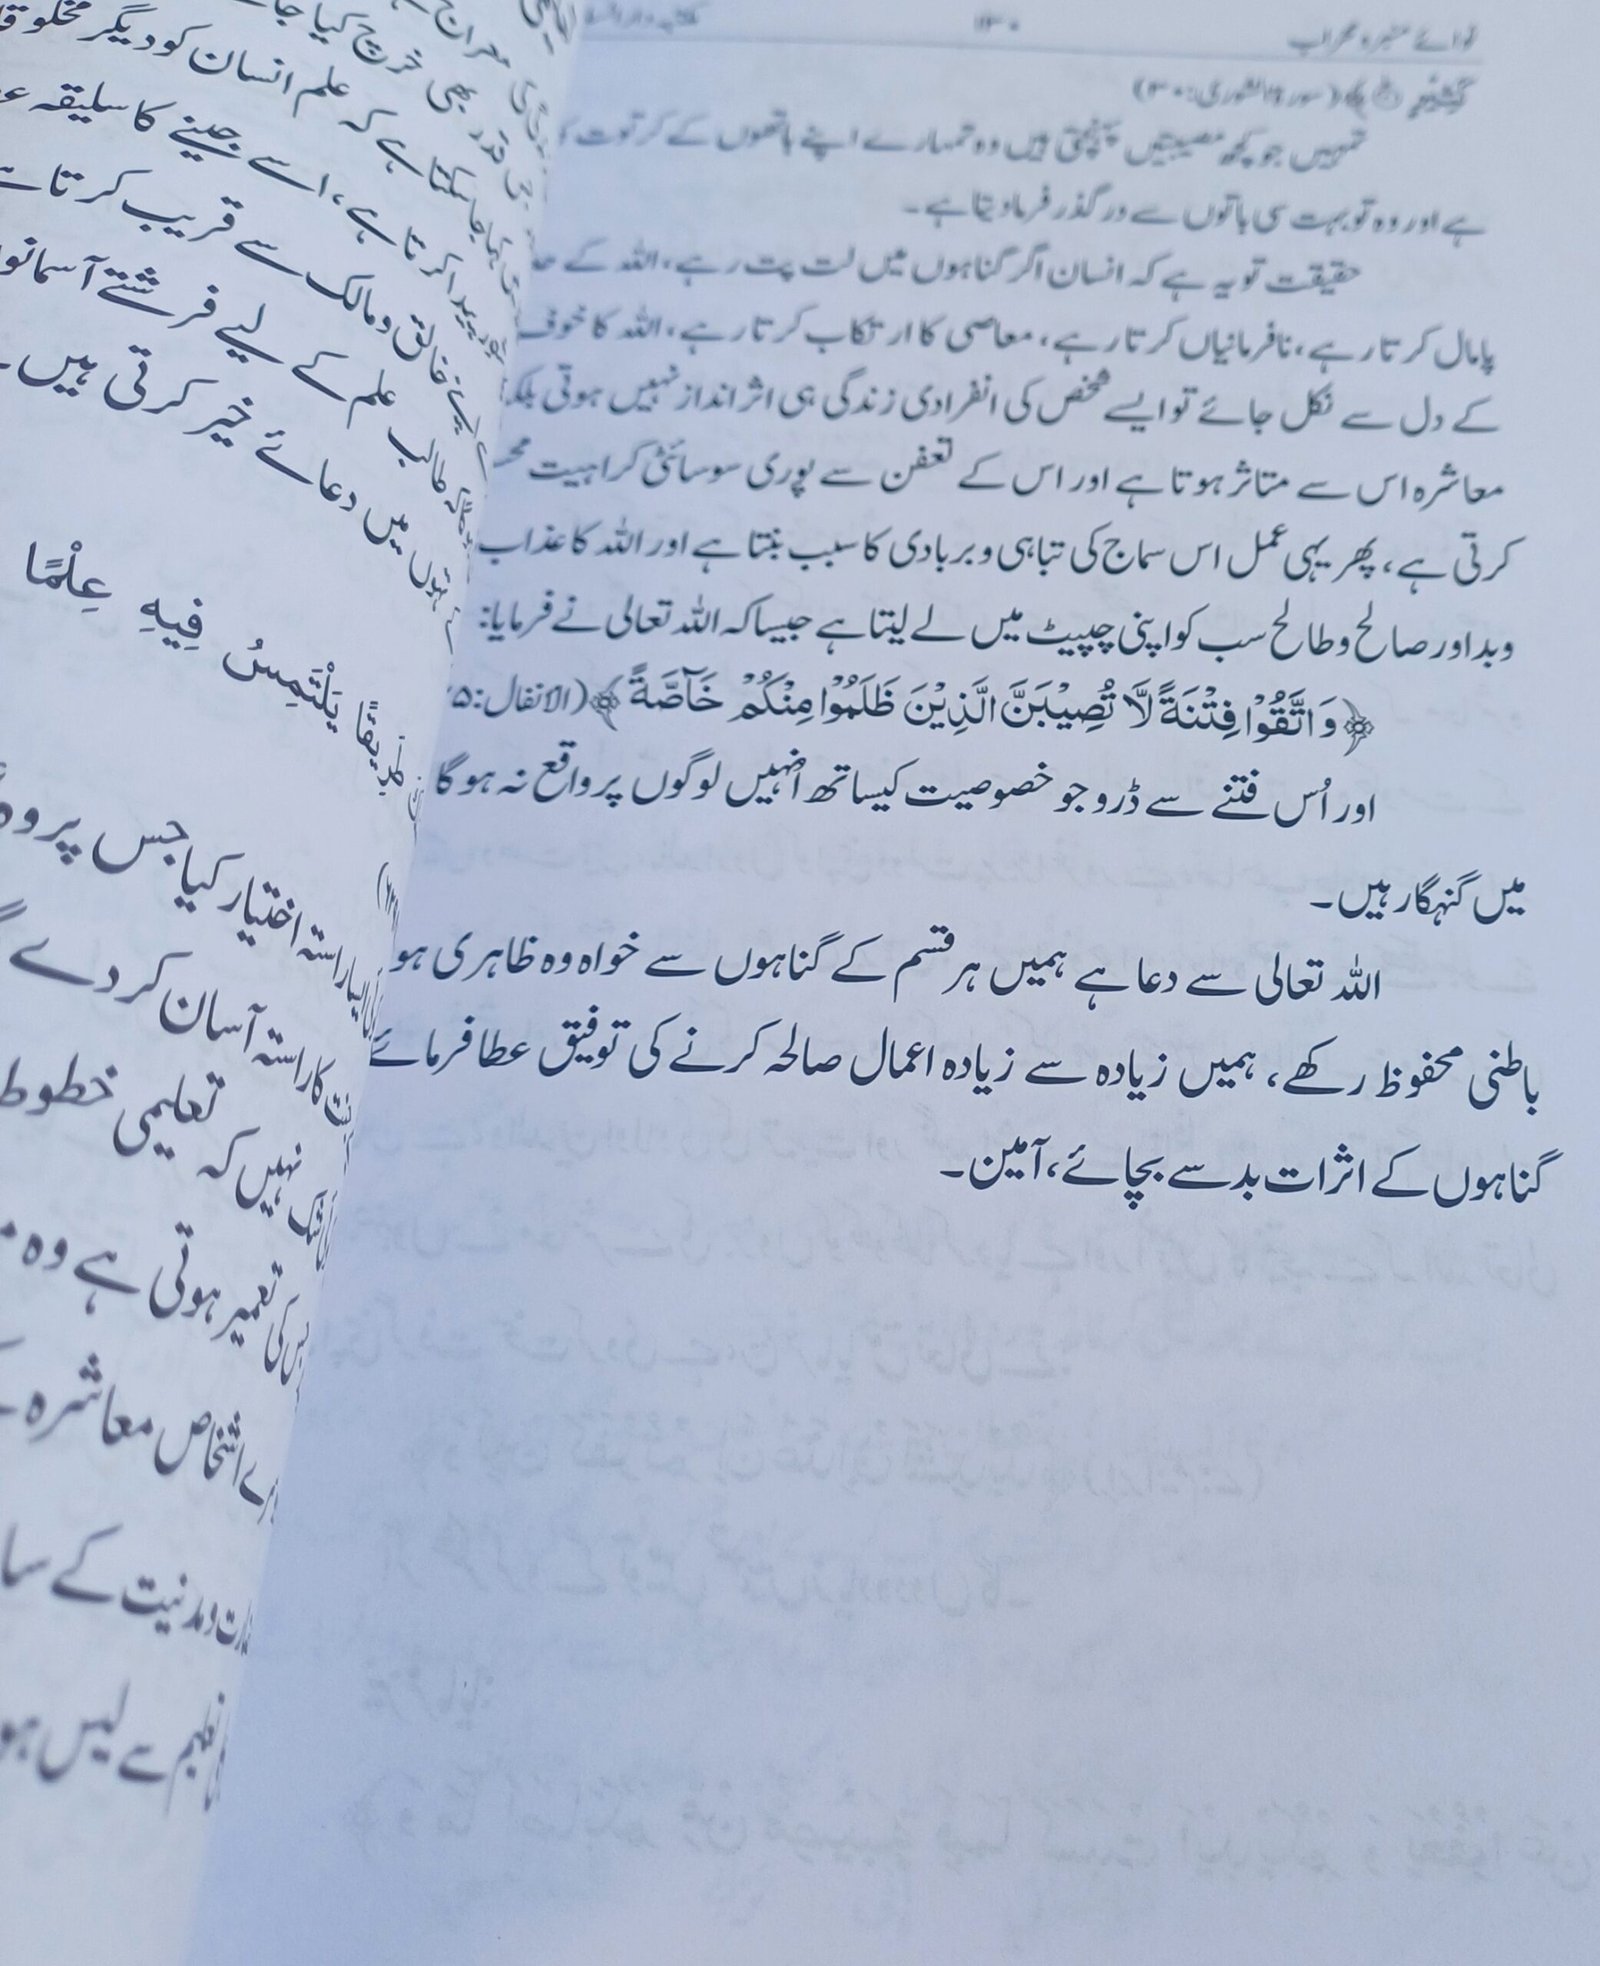 نوائے منبر و محراب ۱۳۰
كَثِيْرٍ ﴾ (سورة الشوری: ۳۰)
تمہیں جو کچھ مصیبتیں پہنچتی ہیں وہ تمہارے اپنے ہاتھوں کے کرتوت
ہے اور وہ تو بہت سی باتوں سے درگذر فرمادیتا ہے۔
حقیقت تو یہ ہے کہ انسان اگر گناہوں میں لت پت رہے، اللہ کے
پامال کرتا رہے، نافرمانیاں کرتا رہے، معاصی کا ارتکاب کرتا رہے، اللہ کا خوف
کے دل سے نکل جائے تو ایسے شخص کی انفرادی زندگی ہی اثر انداز نہیں ہوتی بلکہ
معاشرہ اس سے متاثر ہوتا ہے اور اس کے تعفن سے پوری سوسائٹی کراہیت
کرتی ہے، پھر یہی عمل اس سماج کی تباہی و بربادی کا سبب بنتا ہے اور اللہ کا عذاب
وبد اور صالح و طالح سب کو اپنی چپیٹ میں لے لیتا ہے جیسا کہ اللہ تعالی نے فرمایا:
﴿وَاتَّقُوْا فِتْنَةً لَّا تُصِيْبَنَّ الَّذِيْنَ ظَلَمُوْا مِنْكُمْ خَآصَّةً﴾ (الانفال:
اور اُس فتنے سے ڈرو جو خصوصیت کیساتھ اُنہیں لوگوں پر واقع نہ ہوگا
میں گنہگار ہیں۔
اللہ تعالی سے دعا ہے ہمیں ہر قسم کے گناہوں سے خواہ وہ ظاہری ہو
باطنی محفوظ رکھے، ہمیں زیادہ سے زیادہ اعمال صالحہ کرنے کی توفیق عطا فرمائے
گناہوں کے اثرات بد سے بچائے، آمین۔
بھی خرچ کیا
کہا جا سکتا ہے کہ علم انسان کو دیگر
کرتا ہے، اسے جینے کا سلیقہ
خالق و مالک سے قریب کرتا
طالب علم کے لیے فرشتے
میں دعائے خیر کرتی ہیں۔
طَرِيقًا يَلْتَمِسُ فِيهِ عِلْمًا
راستہ اختیار کیا جس پر وہ
کا راستہ آسان کر دے
نہیں کہ تعلیمی خطوط
کی تعمیر ہوتی ہے وہ
اشخاص معاشرہ
ومدنیت کے
سے لیس